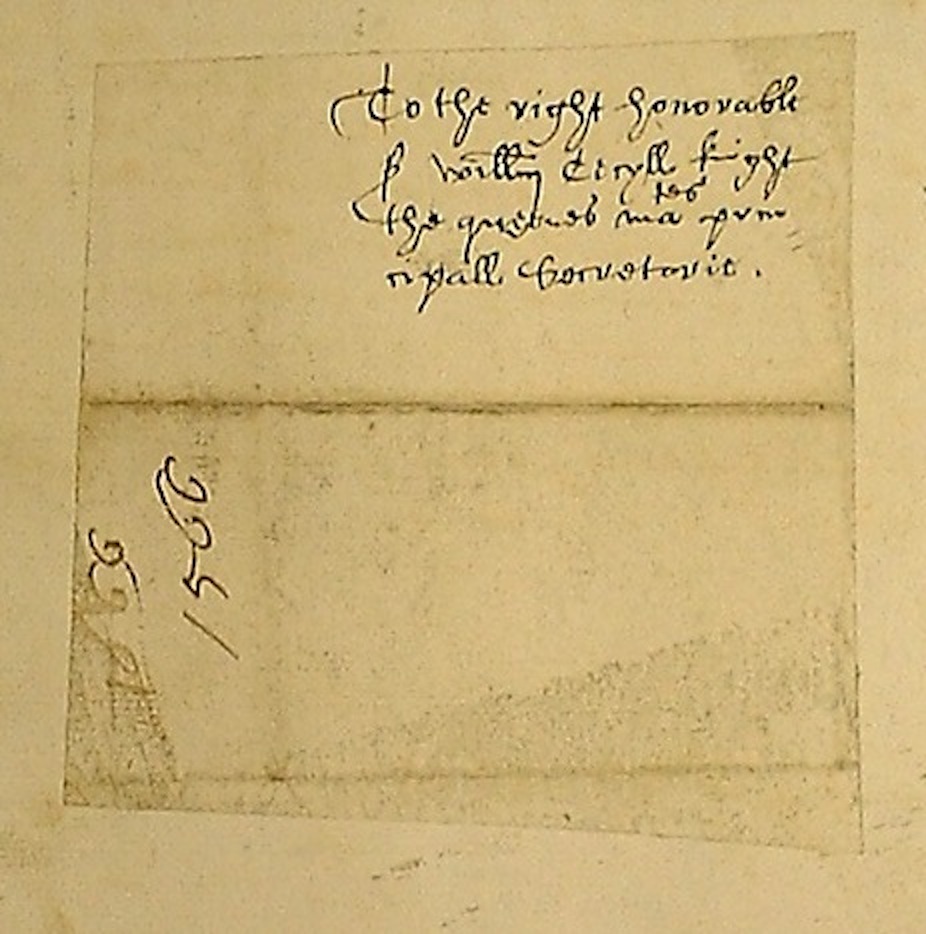 To the right honorable
Sr willm Cecyll knight
the quenes mates prin
cipall Secretorie .